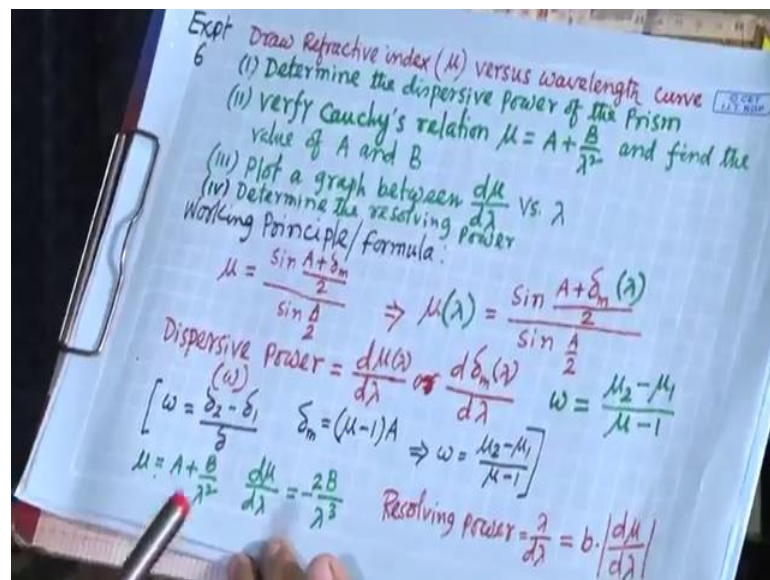 Expt 6 Draw Refractive index (μ) versus wavelength curve
(i) Determine the dispersive power of the Prism
(ii) verfy Cauchy's relation μ = A + B/λ² and find the
value of A and B
(iii) Plot a graph between dμ/dλ vs. λ
(iv) Determine the resolving power
Working Principle/formula:
μ = sin (A+δm)/2 / sin A/2 ⇒ μ(λ) = sin (A+δm(λ))/2 / sin A/2
Dispersive Power (ω) = dμ(λ)/dλ or dδm(λ)/dλ ω = μ2-μ1/μ-1
[ω = δ2-δ1/δ δm = (μ-1)A ⇒ ω = μ2-μ1/μ-1]
μ = A + B/λ² dμ/dλ = -2B/λ³
Resolving power = λ/dλ = b·|dμ/dλ|